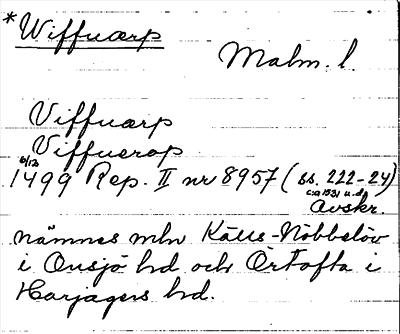 *Wiffuarp
Malm. l.
Viffuarp
Viffuerop
6/12
1499 Rep. II nr 8957 (ss. 222-24)
c:a 1531 u. d.
Avskr.
nämnes mln Källs-Nöbbelöv
i Onsjö hd och Örtofta i
Harjagers hd.